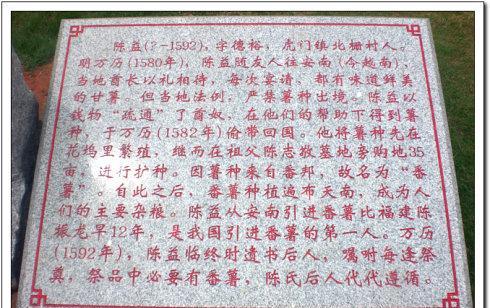 陈益(?-1592),字德裕,虎门镇北栅村人。
明万历(1580年),陈益随友人往安南(今越南),
当地酋长以礼相待,每次宴请,都有味道鲜美
的甘薯。但当地法例,严禁薯种出境。陈益以
钱物“疏通”了酋奴,在他们的帮助下得到薯
种,于万历(1582年)偷带回国。他将薯种先在
花坞里繁殖,继而在祖父陈志敬墓地旁购地35
亩,进行扩种。因薯种来自番邦,故名为“番
薯”。自此之后,番薯种植遍布天南,成为人
们的主要杂粮。陈益从安南引进番薯比福建陈
振龙早12年,是我国引进番薯的第一人。万历
(1592年),陈益临终时遗书后人,嘱咐每逢祭
奠,祭品中必要有番薯,陈氏后人代代遵循。